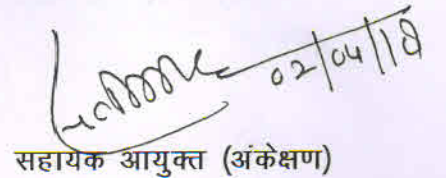 02/04/18
सहायक आयुक्त (अंकेक्षण)